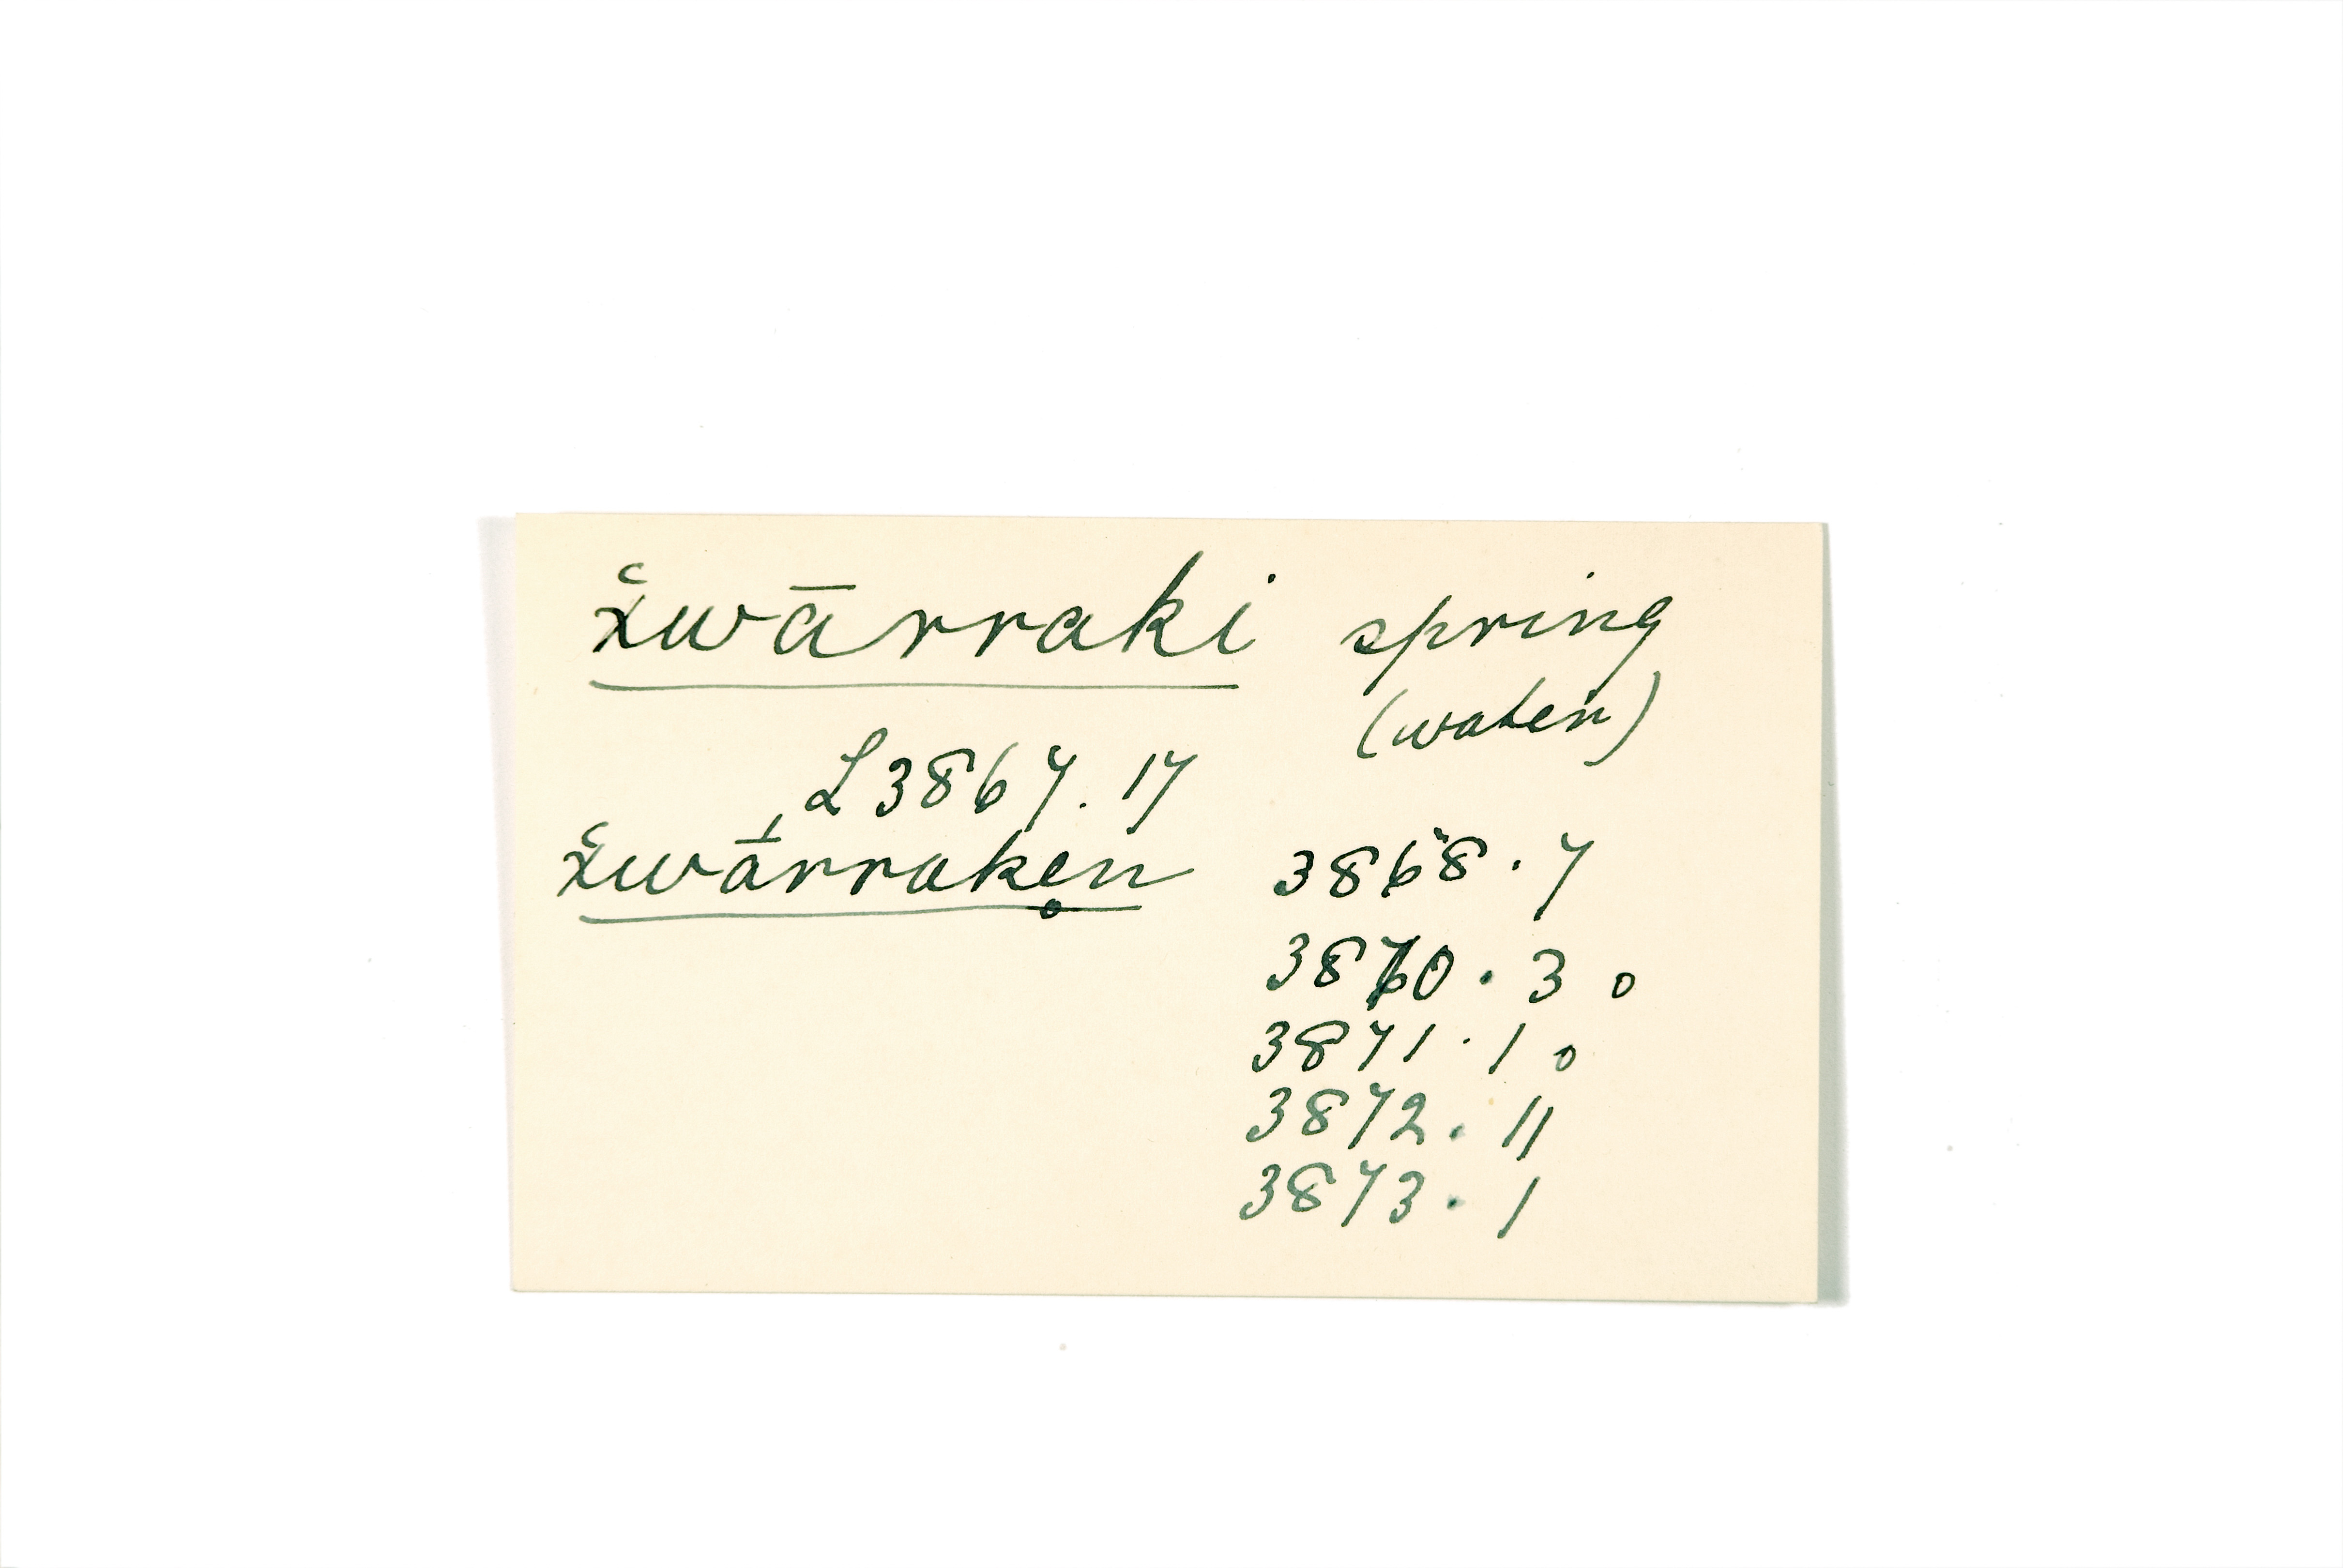 x̆wārraki spring
(water)
L 3867. 17
x̆wā́rrake̥n 3868. 7
3870. 3 o
3871. 1 o
3872. 11
3873. 1